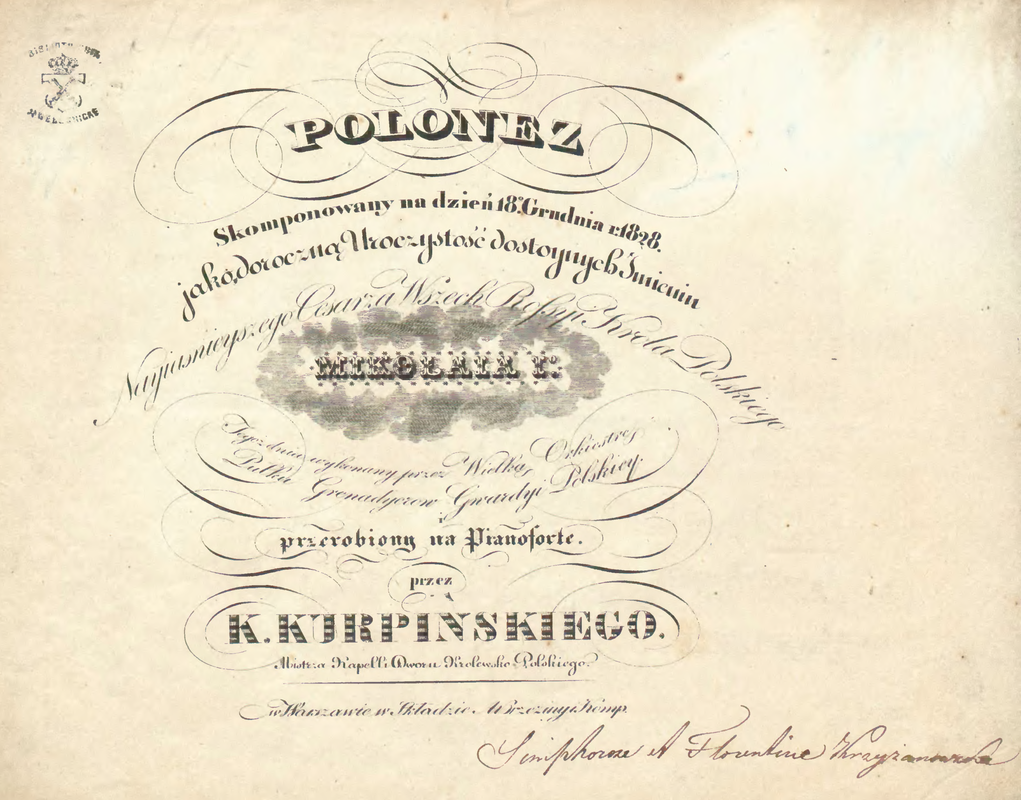 POLONEZ
Skomponowany na dzień 18º Grudnia r: 1828.
jako doroczną Uroczystość dostoynych Imienin
Nayjasnieyszego Cesarza Wszech Rossyi Krola Polskiego
MIKOŁAIA Iº
Tegoż dnia wykonany przez Wielką Orkiestrę
Pułku Grenadyerow Gwardyi Polskiey.
i
przerobiony na Pianoforte.
przez
K. KURPINSKIEGO.
Mistrza Kapelli Dworu Krolewsko-Polskiego.
w Warszawie w Składzie A Brzeziny i Komp.
et Florentine Krzyżanowska